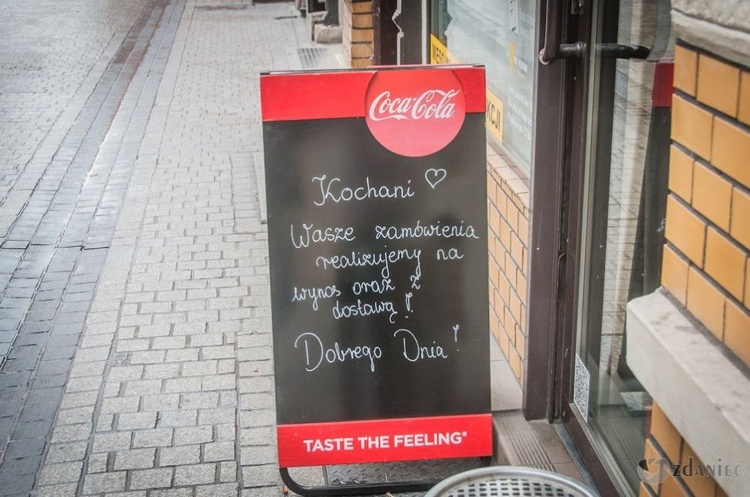 Coca-Cola
Kochani ♡
Wasze zamówienia
realizujemy na
wynos oraz z
dostawą!
Dobrego Dnia!
TASTE THE FEELING®
ZDANIEC